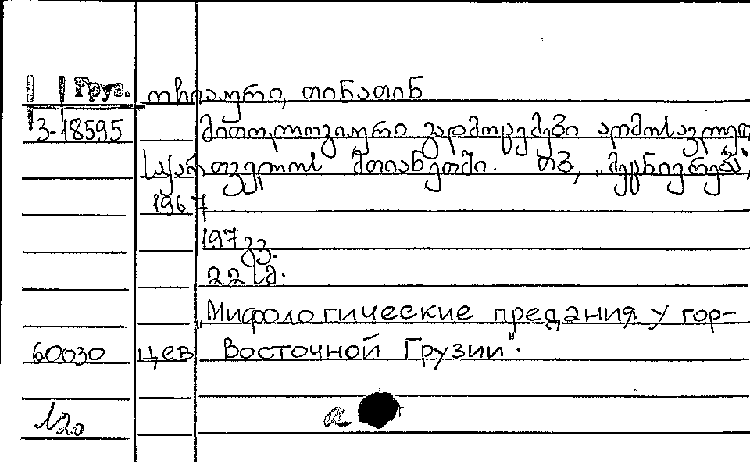 Груз. ოჩიაური, თინათინ
3-18595 მითოლოგიური გადმოცემები აღმოსავლეთ
საქართველოს მთიანეთში. თბ., „მეცნიერება",
1967
197 გვ.
22 სმ.
„Мифологические предания у гор-
60030 цев Восточной Грузии".
120 а